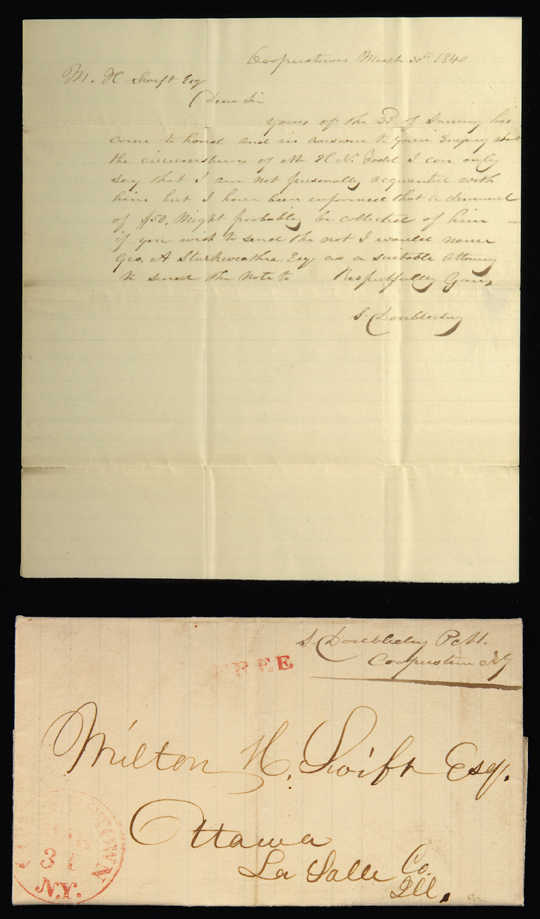 Cooperstown March 30th 1840
M. H Swift Esq
Dear Sir
yours of the 23d of has
come to hand and in answer to your Enquiry about
the circumstances of Mr H N. I can only
say that I am not personally acquainted with
him but I have been informed that a demand
of $50. Might probably be collected of him
if you wish to send the not I would name
Geo. A Starkweather Esq as a suitable Attorney
to send the Note to Respectfully Yours
S. Doubleday
S. Doubleday P.M.
Cooperstown NY
FREE
Milton H. Swift Esq.
Ottawa
La Salle Co.
Ill.
COOPERSTOWN
MAR
31
N.Y.